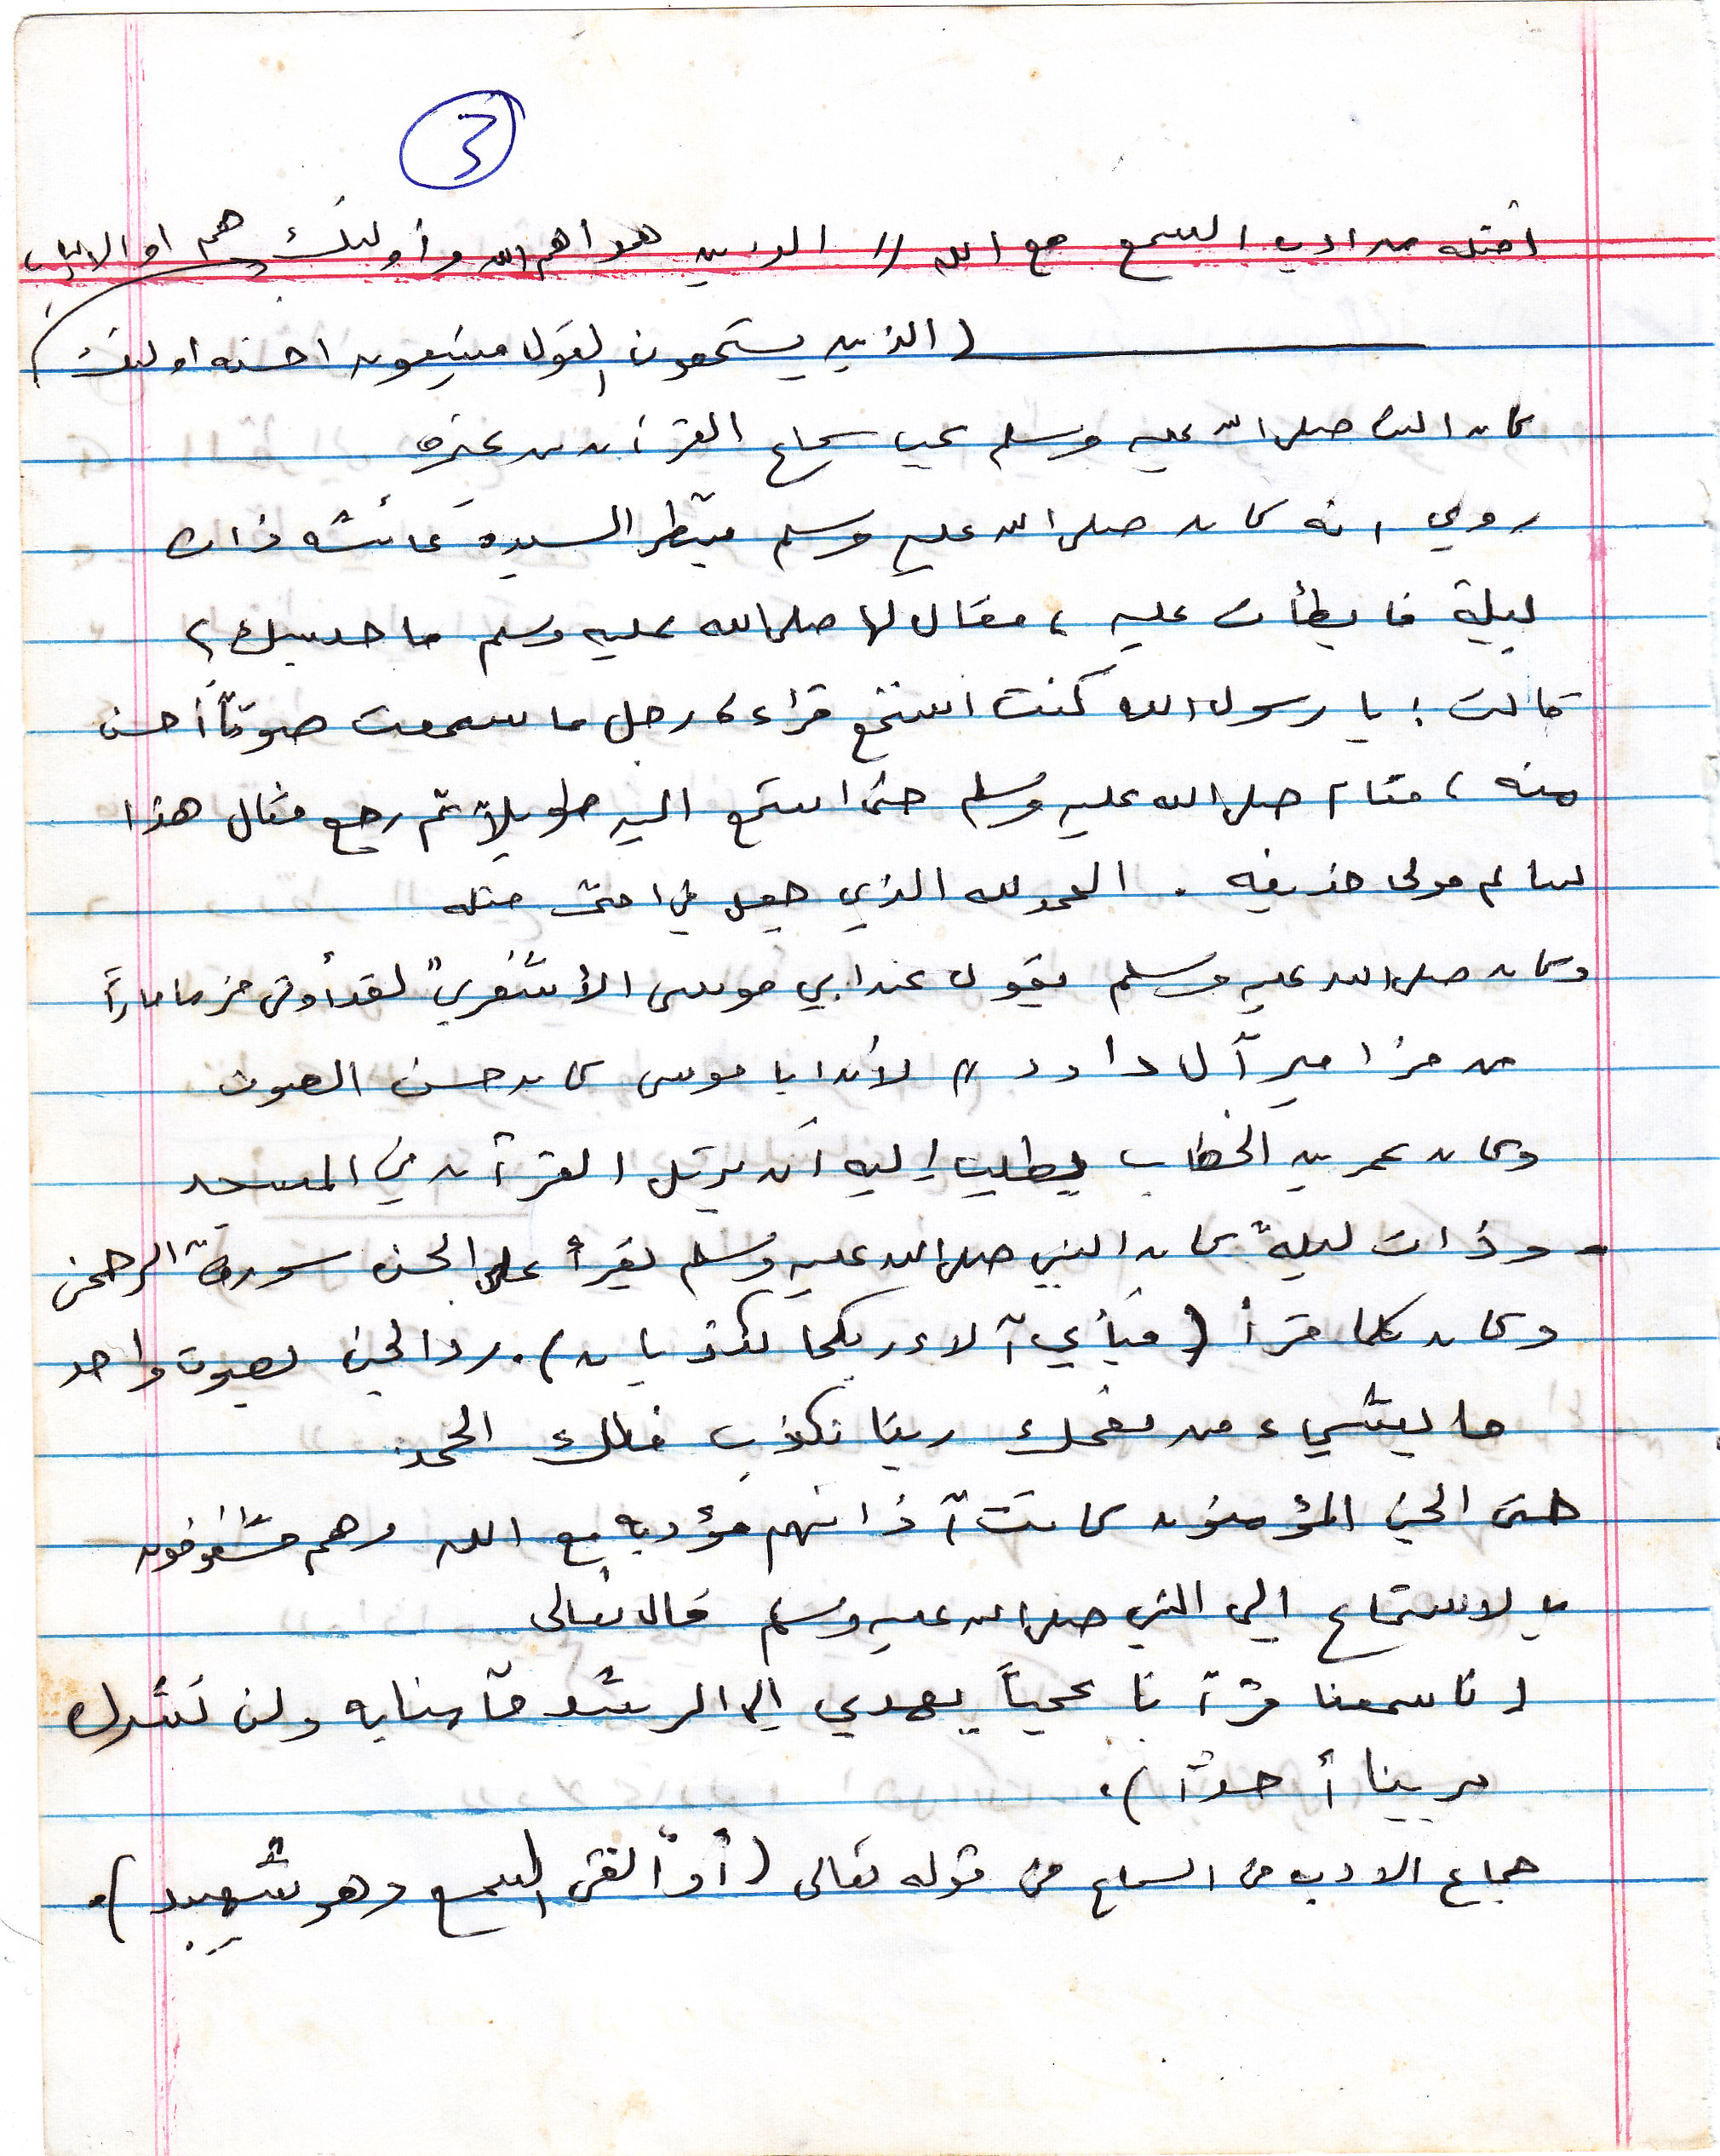 3
أمثله من ادب السمع مع الله // الذين هداهم الله وأولئك هم اولو الالباب
( الذين يستمعون القول فيتبعون احسنه اولئك
كان النبى صلى الله عليه وسلم يحب سماع القرآن من غيره
روي انه كان صلى الله عليه وسلم ينتظر السيدة عائشه ذات
ليلة فابطأت عليه ، فقال لها صلى الله عليه وسلم ما حبسك ؟
قالت : يا رسول الله كنت استمع قراءة رجل ما سمعت صوتاً أحسن
منه ، فقام صلى الله عليه وسلم حتى استمع اليه طويلاً ثم رجع فقال هذا
سالم مولى حذيفه . الحمد لله الذي جعل في امتى مثله
وكان صلى الله عليه وسلم يقول عند ابي موسى الأشعري " لقد أوتى مزماراً
من مزامير آل داود " لأن ابا موسى كان حسن الصوت
وكان عمر بن الخطاب يطلب إليه أن يرتل القرآن في المسجد
- وذات ليلة كان النبي صلى الله عليه وسلم يقرأ على الجن سورة الرحمن
وكان كلما قرأ ( فبأي آلاء ربكما تكذبان ) . رد الجن بصوت واحد
ما بشيء من نعمك ربنا نكذب فلك الحمد
حتى الجن المؤمنون كانت آذانهم مؤدبه مع الله وهم مشغوفون
بالاستماع الي النبي صلى الله عليه وسلم قال تعالى
( نا سمعنا قرآنا عجباً يهدي الى الرشد فآمنا به ولن نشرك
بربنا أحداً ) .
جماع الادب من السماع من قوله تعالى ( أو ألقى السمع وهو شهيد ) .